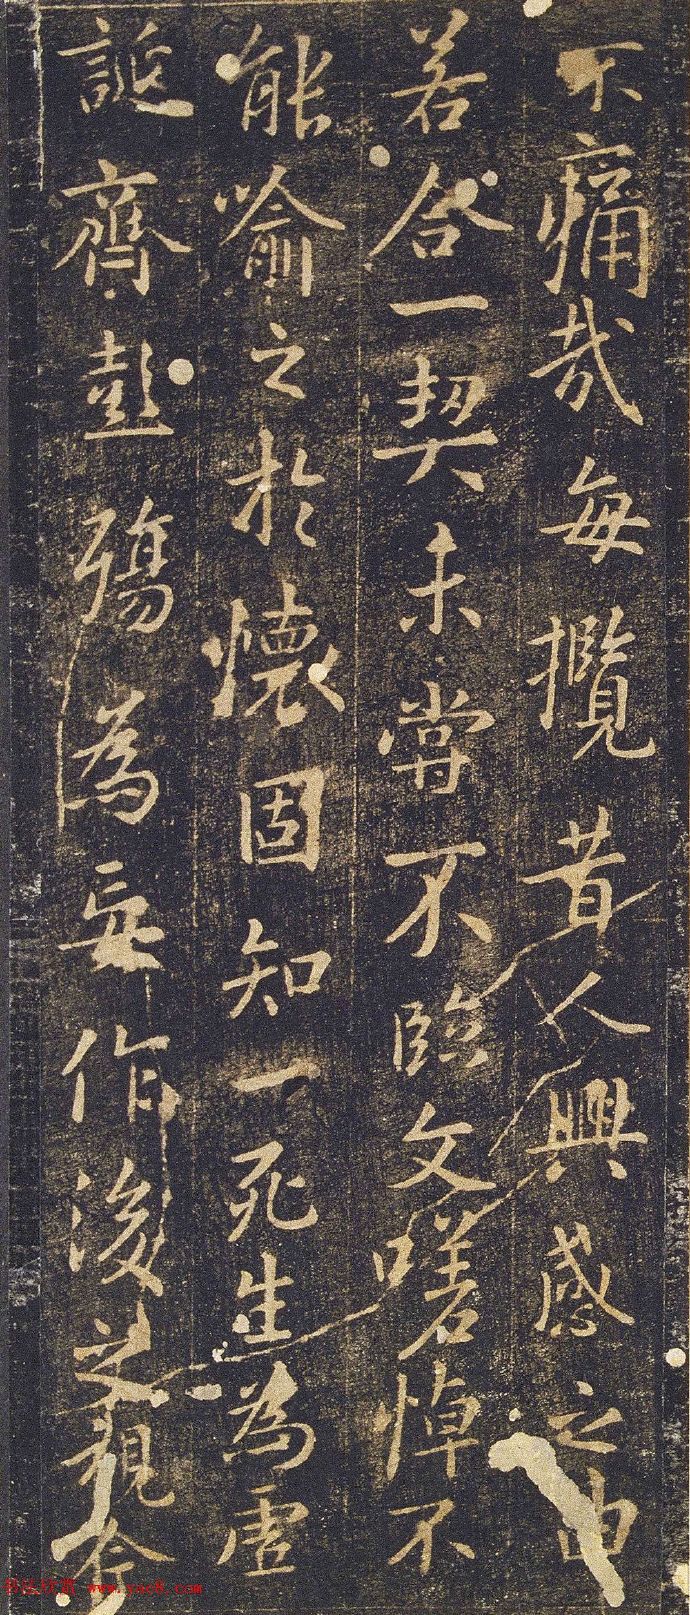 不痛哉每攬昔人興感之由
若合一契未嘗不臨文嗟悼不
能喻之於懷固知一死生為虛
誕齊彭殤為妄作後之視今
书法欣赏 www.yac8.com